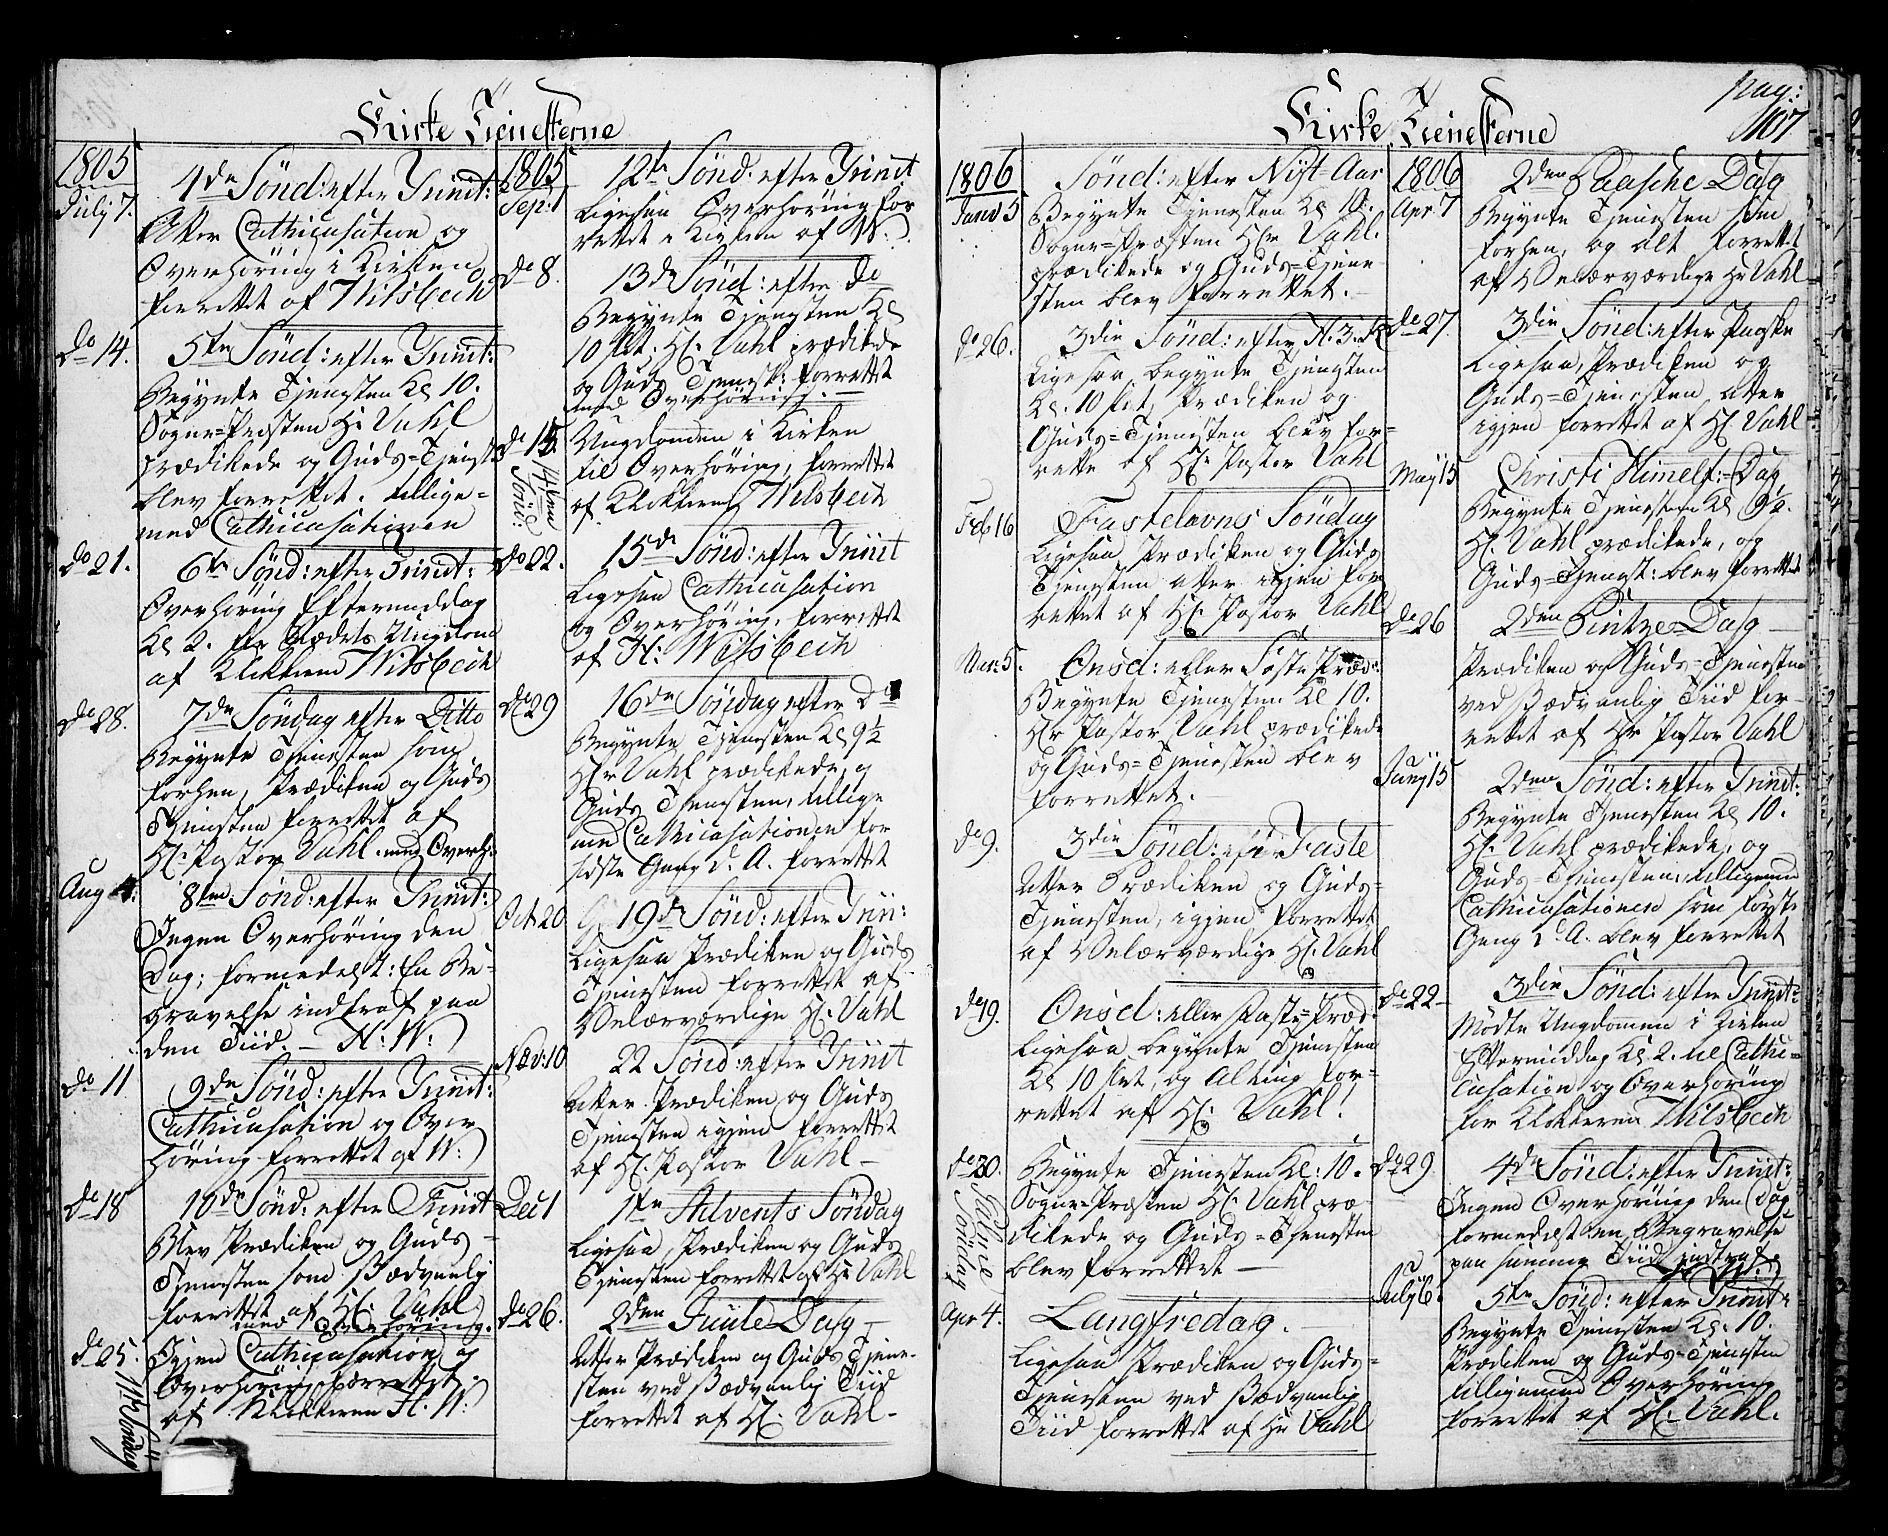 Kirke Tienesterne
1805
Julÿ 7.
4de Sönd: efter Trinit:
Atter Cathicusation og
Overhöring i Kirken
forrettet af Wilsbech
Do 14.
5te Sönd: efter Trinit:
Begÿnte Tjenesten Kl 10.
Sogne=Præsten Hr Vahl
prædikede og Guds=Tjenest
blev forrettet. tillige=
med Cathicusationen
Do 21.
6te Sönd: efter Trinit:
Overhöring Eftermiddag
Kl 2. for Stædets Ungdom
af Klokkeren Wilsbech
Do 28.
7de Söndag efter Ditto
Begÿnte Tjenesten som
forhen, Prædiken og Guds
Tjenesten forrettet af
Hr: Pastor Vahl. med Overh:
Aug 4:
8en Sönd: efter Trinit:
Ingen Overhöring den
Dag; formedelst: En Be-
gravelse indtraf paa
den Tiid. - N: W:
Do 11
9de Sönd: efter Trinit:
Cathicusation og Over
höring forrettet af W:
Do 18
10de Sönd: efter Trinit
Blev Prædiken og Guds=
Tjenesten som sædvanlig
forrettet af Hr: Vahl
med Overhöring.
Do 25.
11te Söndag
Igjen Cathicusation og
Overhöring forrettet
af Klokkeren N. W:
1805
Sep: 1
12te Sönd. efter Trinit
Ligesaa Overhöring for
rettet i Kirken af W:
Do 8.
13de Sönd: efter do
Begÿnte Tjenesten Kl
10 slet, Hr. Vahl prædikede
og Guds Tjenest: forrettet
med Overhöring. -
Do 15.
14den Sönd:
Ungdommen i Kirken
til Overhöring, forrettet
af Klokkeren Wilsbech
Do 22.
15de Sönd: efter Trinit
Ligesaa Cathicusation
og Overhöring, forrettet
af N: Wilsbech
Do 29
16de Söndag efter Do
Begÿnte Tjenesten Kl 9½
Hr Vahl prædikede og
Guds Tjenesten, tillige
med Cathicusationen for
sidste Gang d. A. forrettet
Oct. 20
19de Sönd: efter Trin:
Ligesaa Prædiken og Guds
Tjenesten forrettet af
Velærværdige Hr. Vahl
Nov: 10
22 Sönd: efter Trinit
Atter Prædiken og Guds
Tjenesten igjen forrettet
af Hr. Pastor Vahl -
Dec 1
1te Advents Söndag
Ligesaa Prædiken og Guds
Tjenesten forrettet af Hr Vahl
Do 26.
2den Juule Dag -
Atter Prædiken og Guds Tjene-
sten ved sædvanlig Tiid
forrettet af Hr. Vahl -
Kirke Tienesterne
pag:
107
1806
Janv 5
Sönd: efter Nÿt-Aar
Begÿnte Tjenesten Kl 10.
Sogne=Præsten Hr Vahl.
prædikede og Guds=Tjene-
sten blev forrettet. -
Do 26.
3die Sönd: efter H. 3. K.
Ligesaa begÿnte Tjenesten
Kl. 10 slet, Prædiken og
Guds=Tjenesten blev for=
rettet af Hr: Pastor Vahl
Feb 16
Fastelavns Söndag
Ligesaa Prædiken og Guds
Tjenesten atter igjen for
rettet af Hr. Pastor Vahl
Mar: 5.
Onsd: eller Faste Præd:
Begÿnte Tjenesten Kl 10.
Hr Pastor Vahl prædikede
og Guds=Tjenesten blev
forrettet. -
Do 9.
3die Sönd: i Faste
Atter Prædiken og Guds=
Tjenesten, igjen forrettet
af Velærværdige Hr. Vahl
Do 19.
Onsd: eller Faste=Præd.
Ligesaa begÿnte Tjenesten
Kl 10 slet, og Alting for=
rettet af Hr: Vahl!
Do 30.
Palme Söndag
Begÿnte Tjenesten Kl: 10.
Sogne=Præsten Hr. Vahl præ
dikede og Guds=Tjenesten
blev forrettet -
Apr 4.
Langfredag.
Ligesaa Prædiken og Guds=
Tjenesten ved sædvanlig
Tiid forrettet af Hr Vahl
1806
Apr. 7
2den Paaske Dag
Begÿnte Tjenesten som
forhen, og alt forrettet
af Velærværdige Hr Vahl
Do 27.
3die Sönd: efter Paaske
Ligesaa, Prædiken og
Guds=Tjenesten, atter
igjen forrettet af Hr. Vahl
Maÿ 15
Christi Himelf:=Dag,
Begÿnte Tjenesten Kl 9½.
Hr. Vahl prædikede, og
Guds=Tjenest: blev forrettet
Do 26
2den Pintze=Dag -
Prædiken og Guds=Tjenesten
ved Sædvanlig Tiid for-
rettet af Hr Pastor Vahl
Junÿ 15
2den Sönd: efter Trinit:
Begÿnte Tjenesten Kl 10.
Hr. Vahl prædikede, og
Guds=Tjenesten, tilligemed
Cathicusationen som förste
Gang d. A. blev forrettet
Do 22
3die Sönd: efter Trinit:
Mödte Ungdomen i Kirken
Eftermiddag Kl. 2. til Cathi=
cusation og Overhöring
for Klokkeren Wilsbech
Do 29.
4de Sönd: efter Trinit:
Ingen Overhöring den Dag
formedelst en Begravelse
paa samme Tiid indtraf.
W:
Julÿ 6.
5te Sönd: efter Trinit
Begÿnte Tjenesten Kl. 10.
Prædiken og Guds=Tjenesten
tilligemed Overhöring
forrettet af Hr. Vahl.